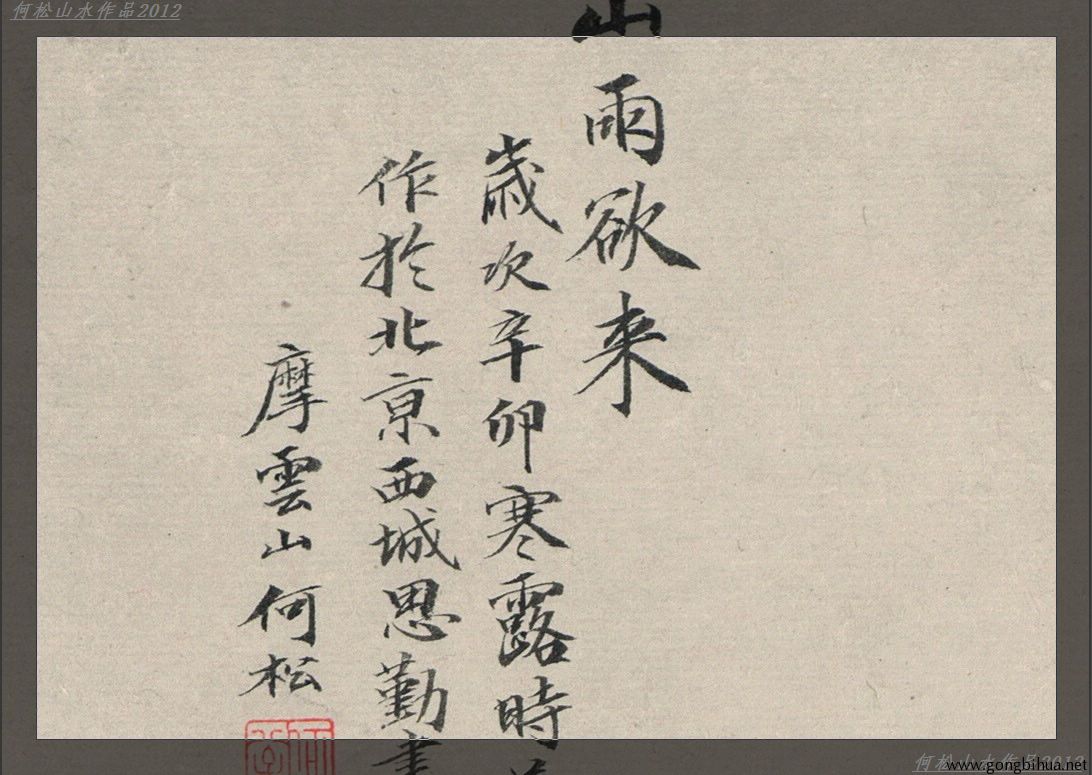 何松山水作品2012
山雨欲来
歲次辛卯寒露時
作於北京西城思勤書
摩雲山何松
何松山水作品2012
www.gongbihua.net